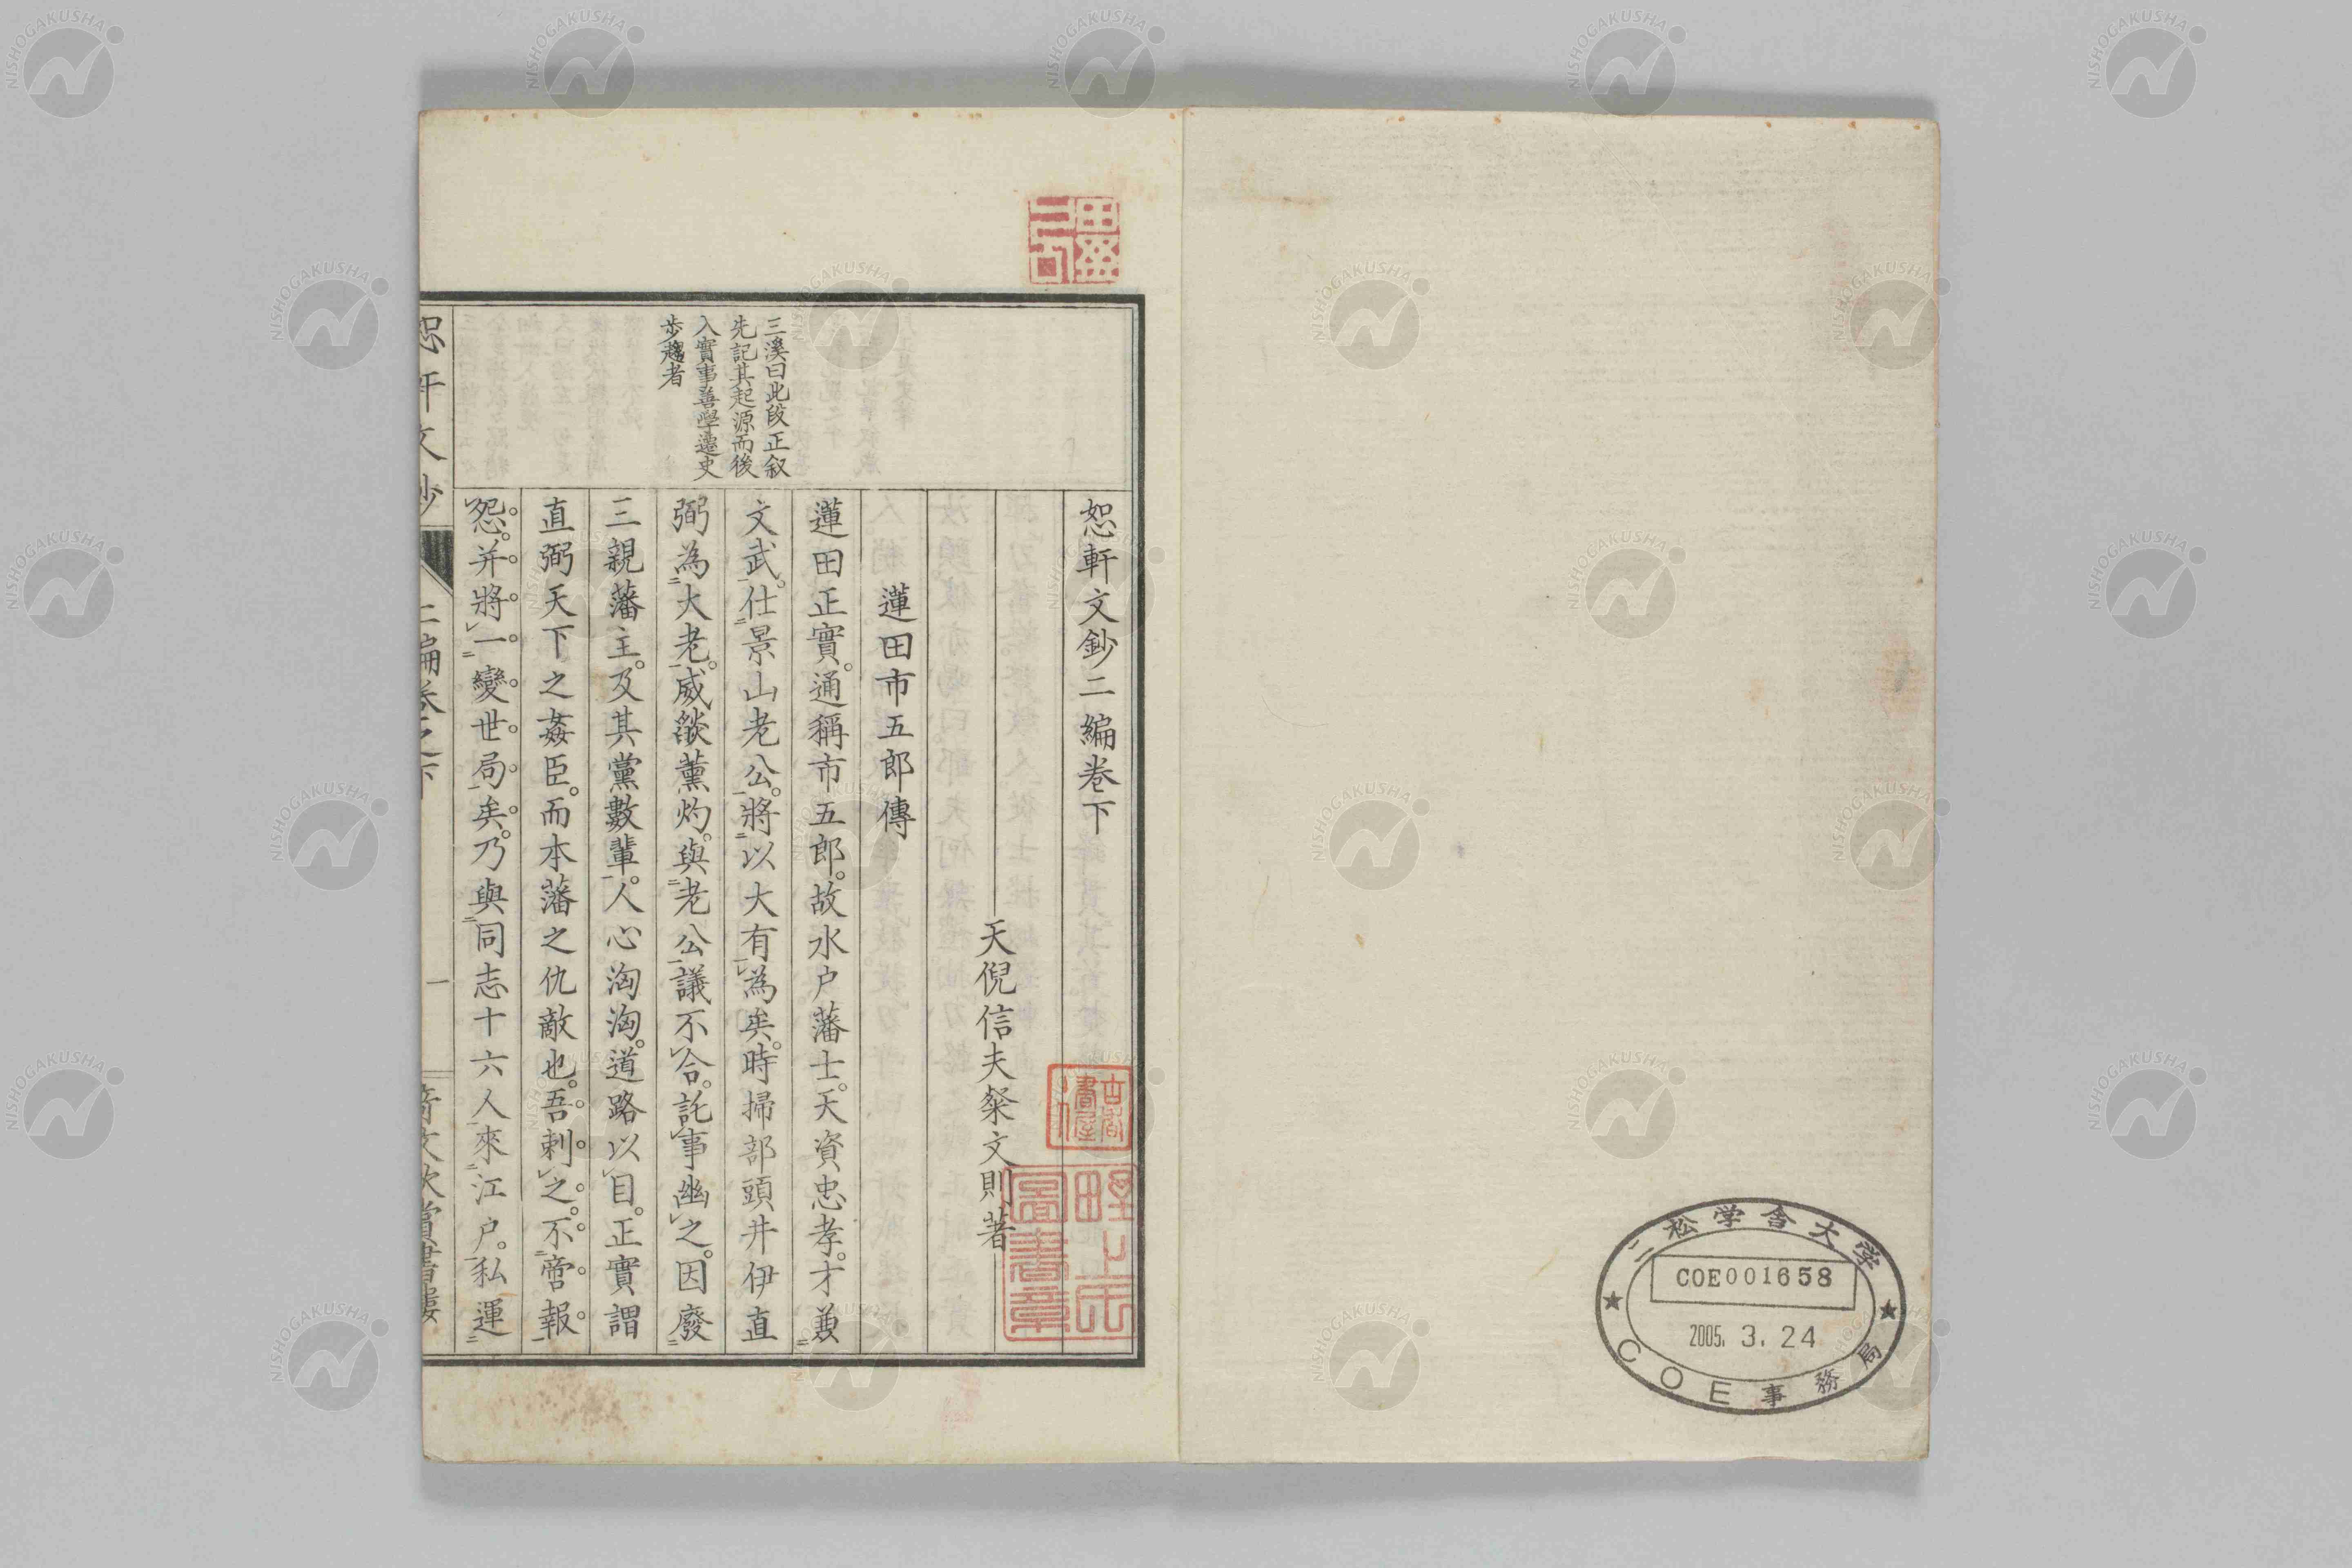 二松学舎大学
COE001658
2005. 3. 24
COE事務局
恕軒文鈔二編巻下
天倪信夫粲文則著
蓮田市五郎傳
蓮田正實。通稱市五郎。故水戶藩士。天資忠孝。才兼
文武。仕景山老公。將以大有為矣。時掃部頭井伊直
弼為大老。威燄薰灼。與老公議不合。託事幽之。因廢
三親藩主。及其黨數輩。人心洶洶。道路以目。正實謂
直弼天下之姦臣。而本藩之仇敵也。吾刺之。不啻報
怨。并將一變世局矣。乃與同志十六人來江戶。私運
三溪曰此段正叙
先記其起源而後
入實事善學遷史
步趨者
恕軒文鈔
二編卷之下
一
奇文欣賞書樓
NISHOGAKUSHA